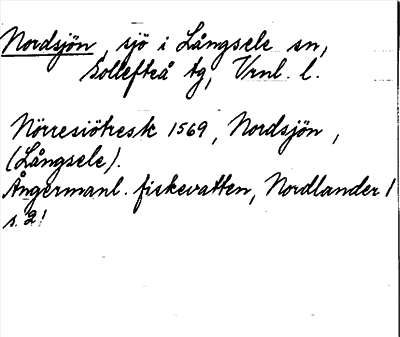 Nordsjön, sjö i Långsele sn,
Sollefteå tg, Vrnl. l.
Nörresiötresk 1569, Nordsjön,
(Långsele).
Ångermanl. fiskevatten, Nordlander 1
s. 21